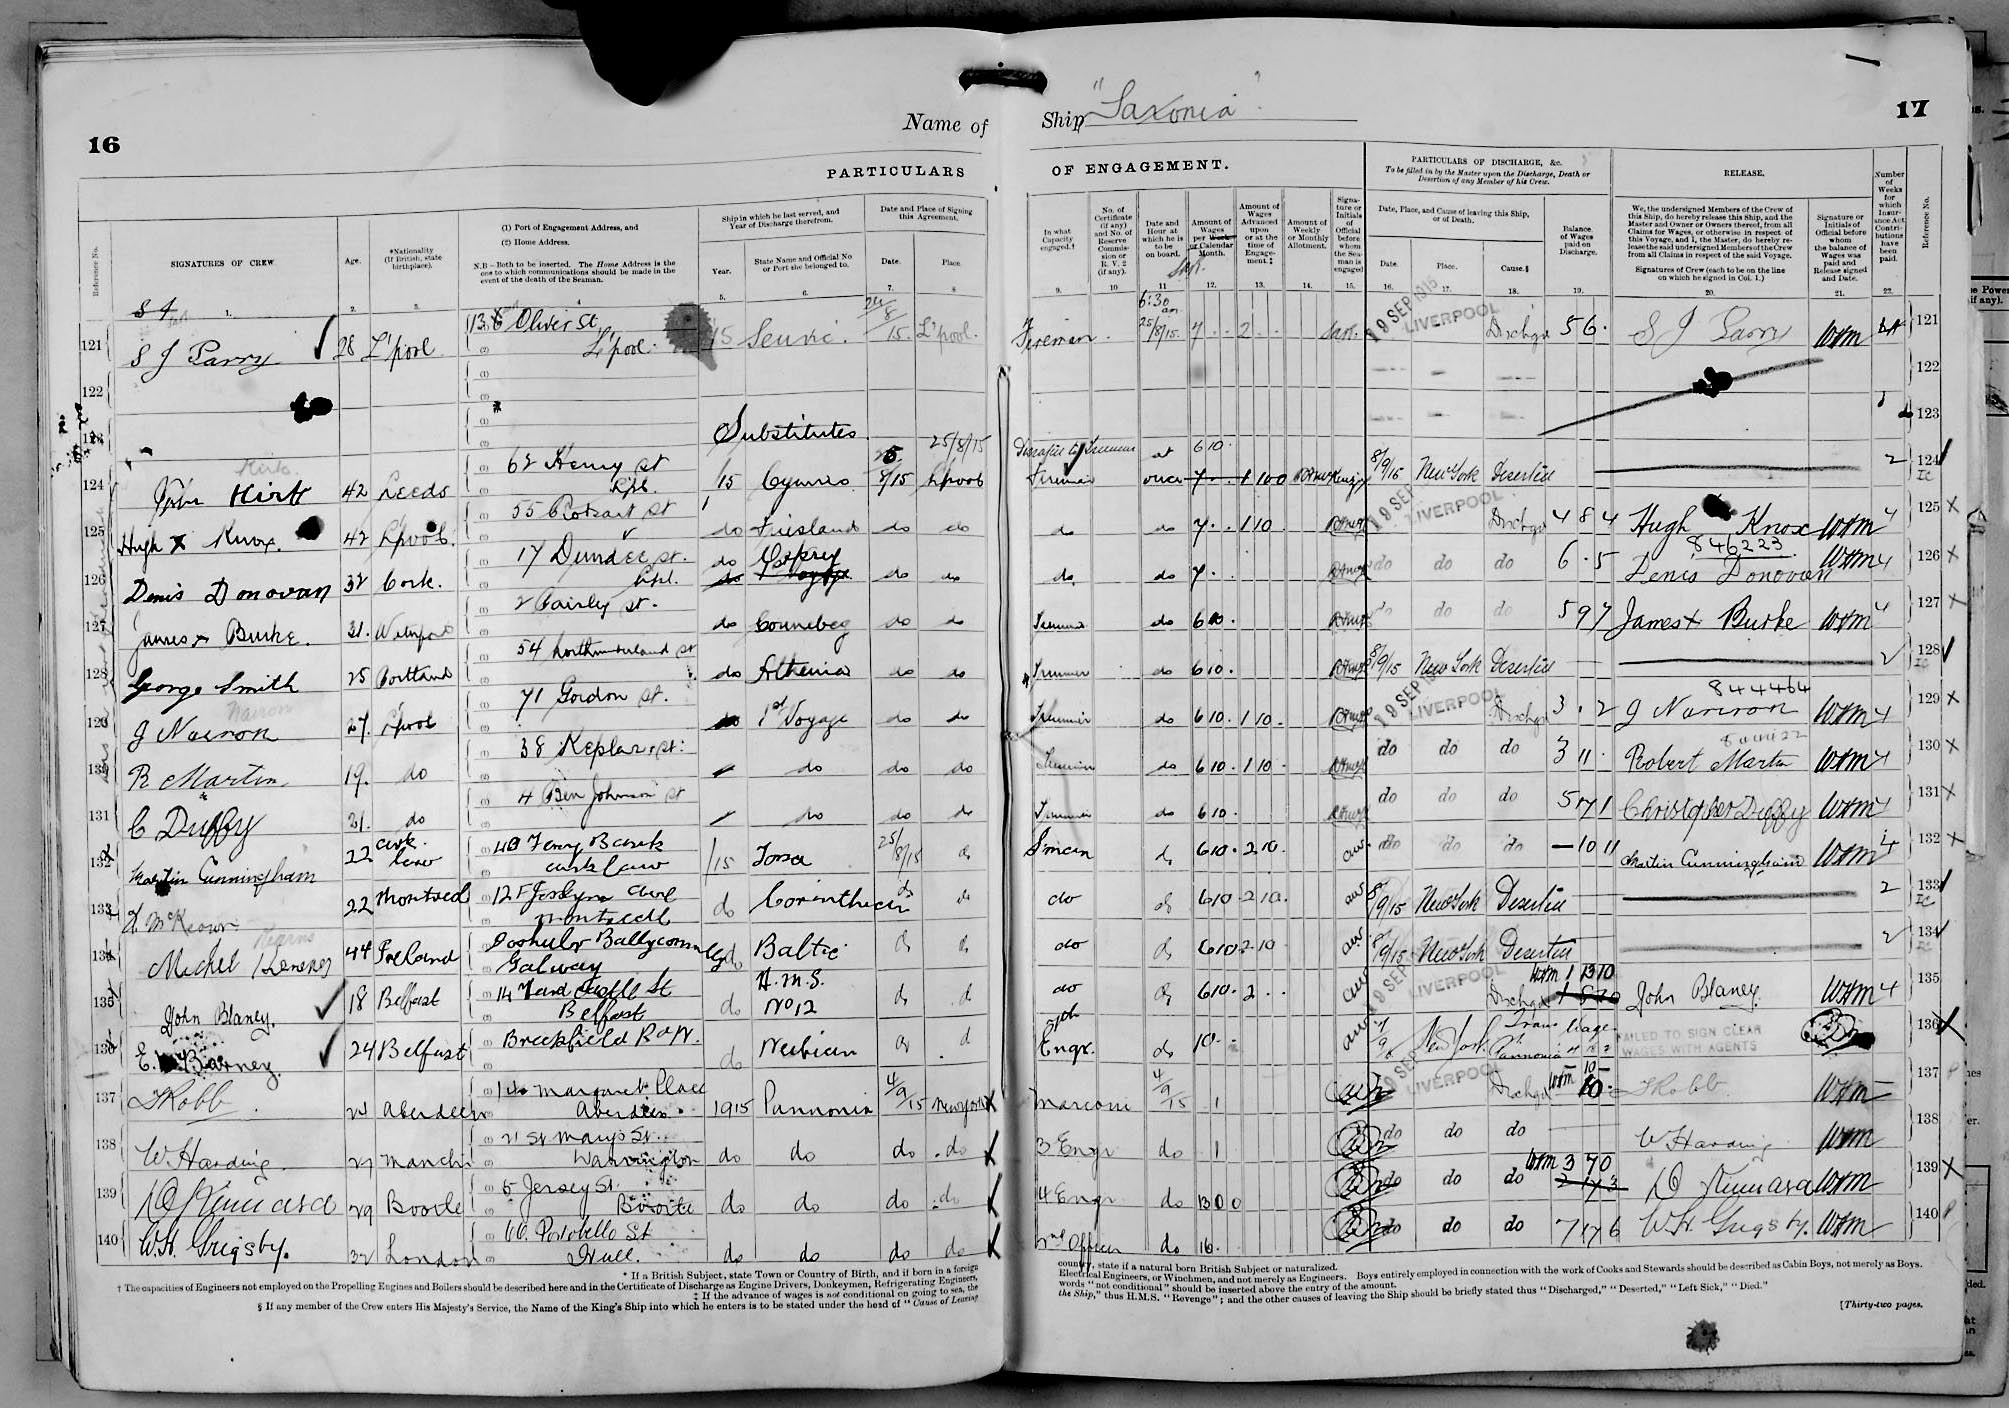 16
Name of
Ship "Saxonia"
17
PARTICULARS
OF ENGAGEMENT.
PARTICULARS OF DISCHARGE, &c.
To be filled in by the Master upon the Discharge, Death or Desertion of any Member of his Crew.
RELEASE.
Reference No.
SIGNATURES OF CREW.
Age.
*Nationality (If British, state birthplace).
(1) Port of Engagement Address, and
(2) Home Address.
N.B.—Both to be inserted. The Home Address is the one to which communications should be made in the event of the death of the Seaman.
Ship in which he last served, and Year of Discharge therefrom.
Year.
State Name and Official No or Port she belonged to.
Date and Place of Signing this Agreement.
Date.
Place.
In what Capacity engaged.†
No. of Certificate (if any) and No. of Reserve Commission or R. V. 2 (if any).
Date and Hour at which he is to be on board.
Amount of Wages per Week or Calendar Month.
Amount of Wages Advanced upon or at the time of Engagement.‡
Amount of Weekly or Monthly Allotment.
Signature or Initials of Official before whom the Seaman is engaged
Date, Place, and Cause of leaving this Ship, or of Death.
Date.
Place.
Cause.§
Balance of Wages paid on Discharge.
We, the undersigned Members of the Crew of this Ship, do hereby release this Ship, and the Master and Owner or Owners thereof, from all Claims for Wages, or otherwise in respect of this Voyage, and I, the Master, do hereby release the said undersigned Members of the Crew from all Claims in respect of the said Voyage.
Signatures of Crew (each to be on the line on which he signed in Col. 1.)
Signature or Initials of Official before whom the balance of Wages was paid and Release signed and Date.
Number of Weeks for which Insurance Act Contributions have been paid.
Reference No.
1. 2. 3. 4 5. 6. 7. 8 9. 10 11. 12. 13. 14. 15. 16. 17. 18. 19. 20. 21. 22.
121 S J Parry 28 L'pool Oliver St L'pool 15 24/8/15 L'pool Fireman 6:30 am 25/8/15 7 2 19 SEP 1915 LIVERPOOL Dischgd 5 6 S J Parry WHM 121
122 122
123 Substitutes 25/8/15 123
124 John Kirk 42 Leeds 62 Henry St Lpl. /15 Cymric 25/8/15 Lpool Fireman at once 7 1 8/9/15 New York Desertion 2 124
125 Hugh X Knox. 42 Lpool. 55 St do Friesland do do do do 7 1 10 19 SEP LIVERPOOL Dischgd 4 8 4 Hugh Knox WHM 4 125
126 Denis Donovan 32 Cork. 17 Dundee St. Lpl. do Osprey do do do do 7 do do do 6 . 5 846223 Denis Donovan WHM 4 126
127 James x Burke. 31. Waterford 2 Fairley St. do Connebeg do do Trimmer do 6 10 do do do 5 9 7 James x Burke WHM 4 127
128 George Smith 25 Portland 54 Northumberland St do Athenia do do Trimmer do 6 10 8/9/15 New York Desertion 2 128
129 J Nairon 27. Lpool 71 Gordon St. do 1st Voyage do do Trimmer do 6 10 1 10 19 SEP LIVERPOOL Dischgd 3 . 2 844464 J Nairon WHM 4 129
130 R Martin 19. do 38 Keplar St. do do do Trimmer do 6 10 1 10 do do do 3 11 Robert Martin WHM 4 130
131 C Duffy 21. do 4 Ben Johnson St do do do Trimmer do 6 10 do do do 5 17 1 Christopher Duffy WHM 4 131
132 Martin Cunningham 22 Arklow 40 Ferry Bank Arklow /15 25/8/15 do do 6 10 2 10 do do do – 10 11 Martin Cunningham WHM 4 132
133 McKeown 22 Montreal 127 Joslyn Ave Montreal do Corinthian do do do do 6 10 2 10 8/9/15 New York Desertion 2 133
134 Michel 44 Ireland Galway do Baltic do do do do 6 10 2 10 8/9/15 New York Desertion 2 134
135 John Blaney. 18 Belfast 14 St Belfast do H.M.S. No 12 do do do do 6 10 2 19 SEP LIVERPOOL Dischgd WHM 1 13 10 John Blaney WHM 4 135
136 E. Barney. 24 Belfast do Nubian do do Engr. do 10 New York Pannonia FAILED TO SIGN CLEAR WAGES WITH AGENTS 136
137 Robb 24 Aberdeen Margaret Place Aberdeen 1915 Pannonia 4/9/15 New York Marconi 4/9/15 1 LIVERPOOL Dischgd WHM 10 Robb WHM 137
138 W. Harding. 27 Manchr 21 St Marys St. Warrington do do do do 3 Engr do 1 do do do W Harding WHM 138
139 D Kinnaird 29 Bootle 5 Jersey St. Bootle do do do do 4 Engr do 13 0 0 do do do WHM 3 7 0 D Kinnaird WHM 139
140 W.H. Grigsby. 32 London 66 Portobello St Hull. do do do do 2nd Officer do 16. do do do 7 17 6 W.H. Grigsby. WHM 140
* If a British Subject, state Town or Country of Birth, and if born in a foreign
country, state if a natural born British Subject or naturalized.
† The capacities of Engineers not employed on the Propelling Engines and Boilers should be described here and in the Certificate of Discharge as Engine Drivers, Donkeymen, Refrigerating Engineers,
Electrical Engineers, or Winchmen, and not merely as Engineers. Boys entirely employed in connection with the work of Cooks and Stewards should be described as Cabin Boys, not merely as Boys.
‡ If the advance of wages is not conditional on going to sea, the
words "not conditional" should be inserted above the entry of the amount.
§ If any member of the Crew enters His Majesty's Service, the Name of the King's Ship into which he enters is to be stated under the head of "Cause of Leaving
the Ship," thus H.M.S. "Revenge"; and the other causes of leaving the Ship should be briefly stated thus "Discharged," "Deserted," "Left Sick," "Died."
[Thirty-two pages.